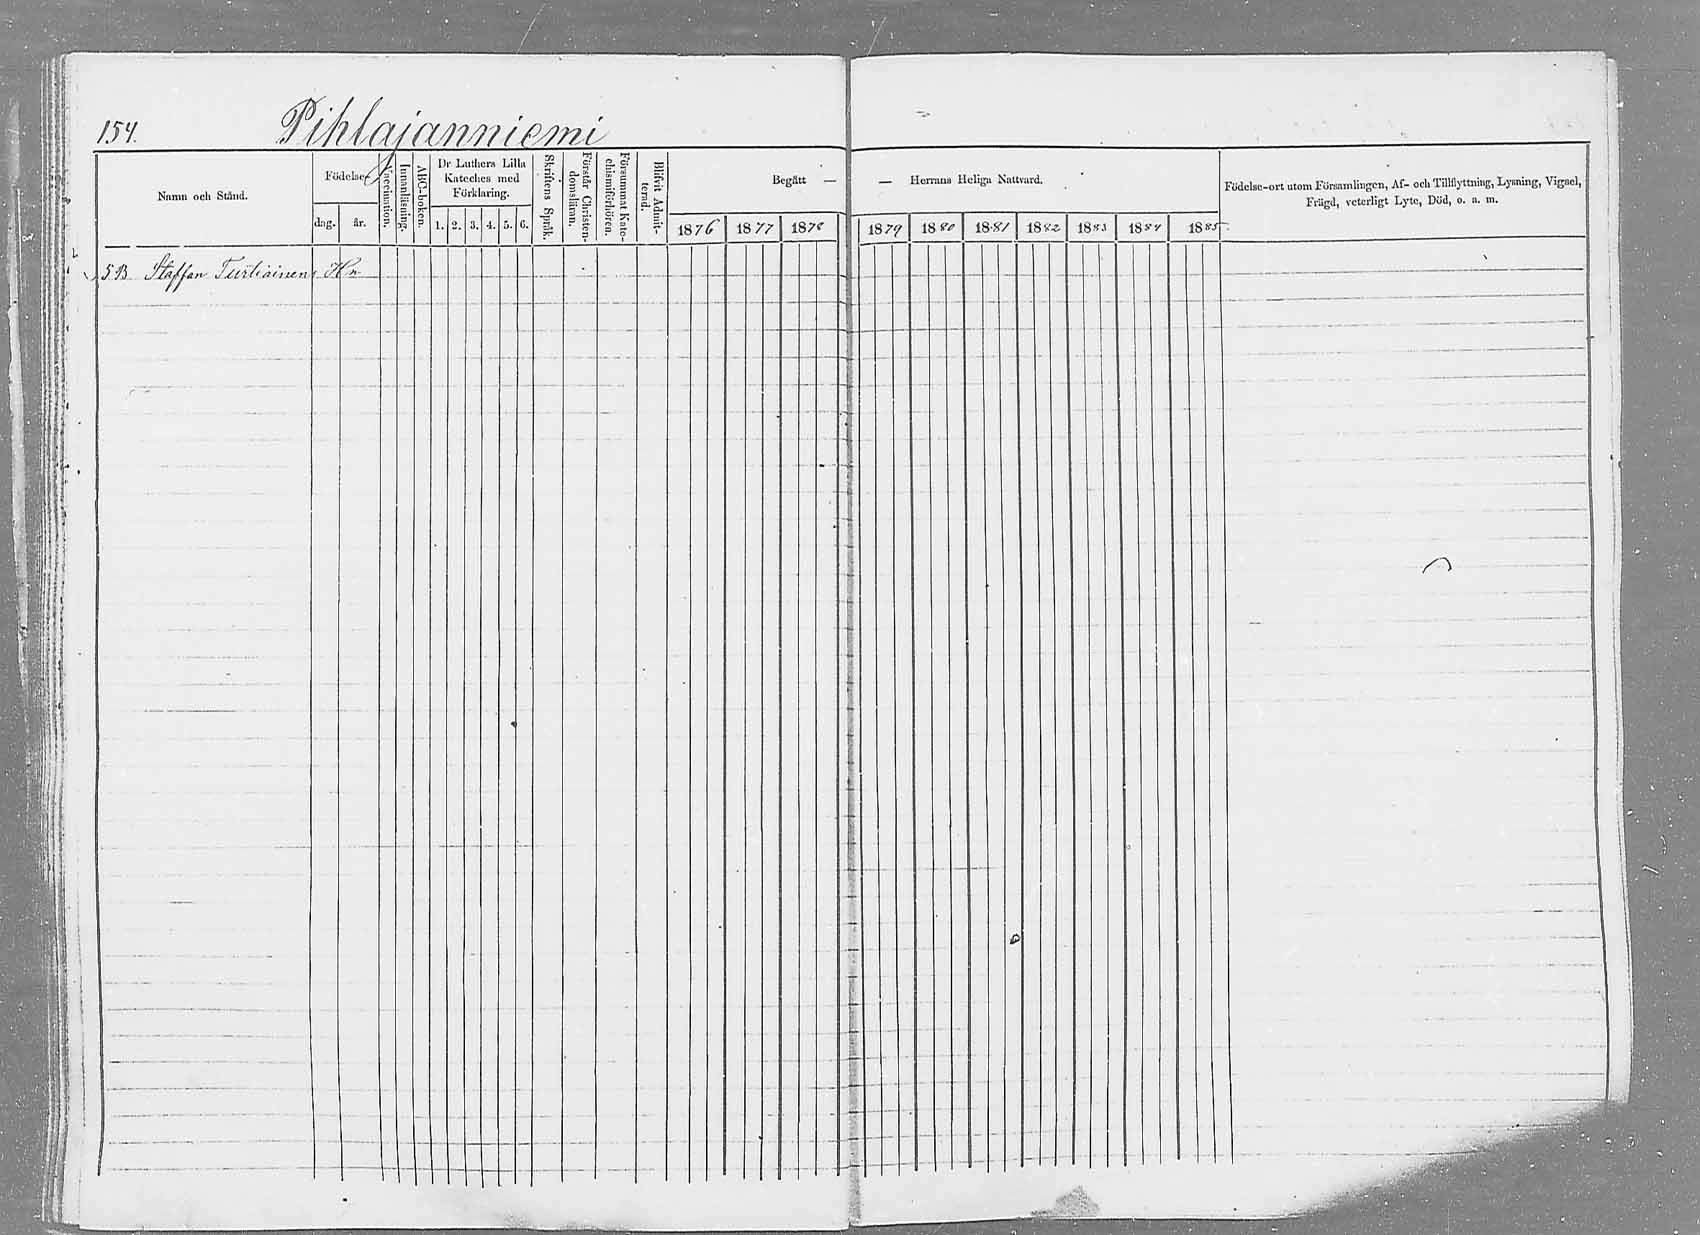 154. Pihlajanniemi
Namn och Stånd.
Födelse-
dag. år.
Vaccination.
Innanläsning.
ABC-boken.
Dr Luthers Lilla
Kateches med
Förklaring.
1. 2. 3. 4. 5. 6.
Skriftens Språk.
Förstår Christen-
domsläran.
Försummat Kate-
chismiförhören.
Blifvit Admit-
terad.
Begått — — Herrans Heliga Nattvard.
1876 1877 1878 1879 1880 1881 1882 1883 1884 1885
Födelse-ort utom Församlingen, Af- och Tillflyttning, Lysning, Vigsel,
Frägd, veterligt Lyte, Död, o. a. m.
5 B Staffan Turtiainens H n